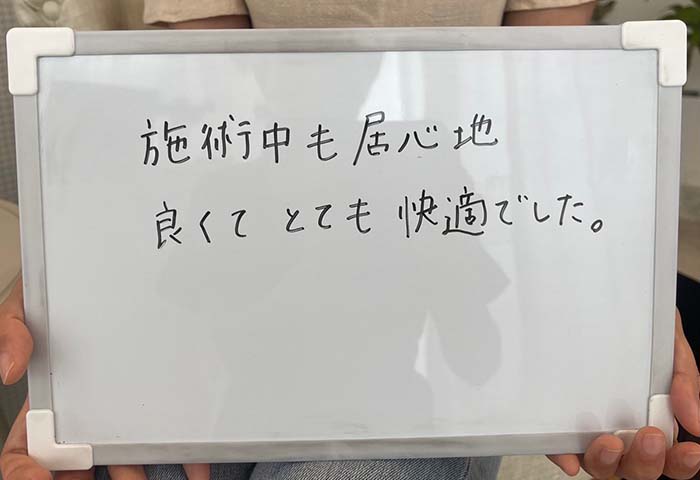 施術中も居心地
良くて とても 快適でした。